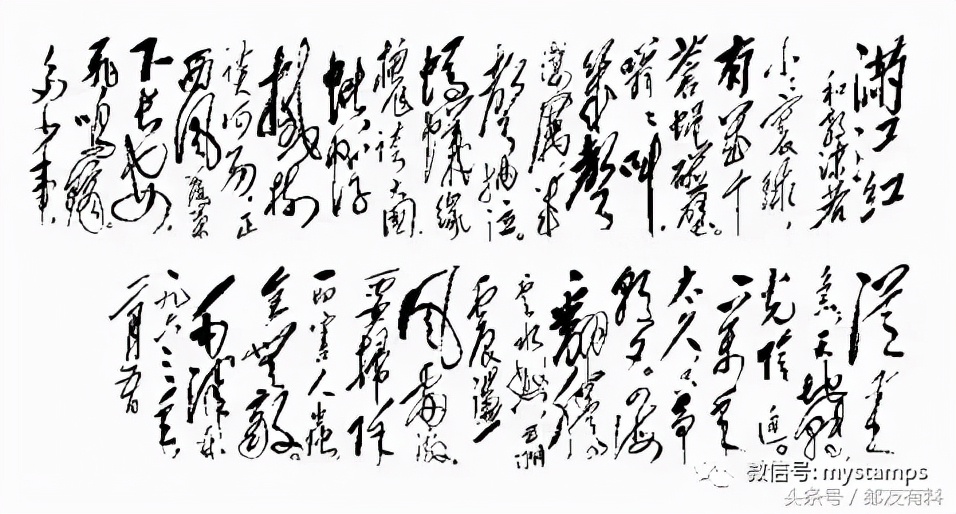 滿江红
和郭沫若
小小寰球,
有幾个
苍蝇碰壁。
嗡嗡叫,
幾声
凄厉,幾
声抽泣。
蚂蚁缘
槐夸大国,
蚍蜉
撼树
谈何易。正
西风落葉
下长安,
飛鸣镝。
多少事,
從来
急。天地转,
光阴迫。
一萬年
太久,只争
朝夕。四海
翻腾
云水怒,五洲
震荡
风雷激。
要掃除
一切害人虫,
全无敌。
毛泽东
一九六三年
二月五日
微信号: mystamps
头条号 / 邮友有料